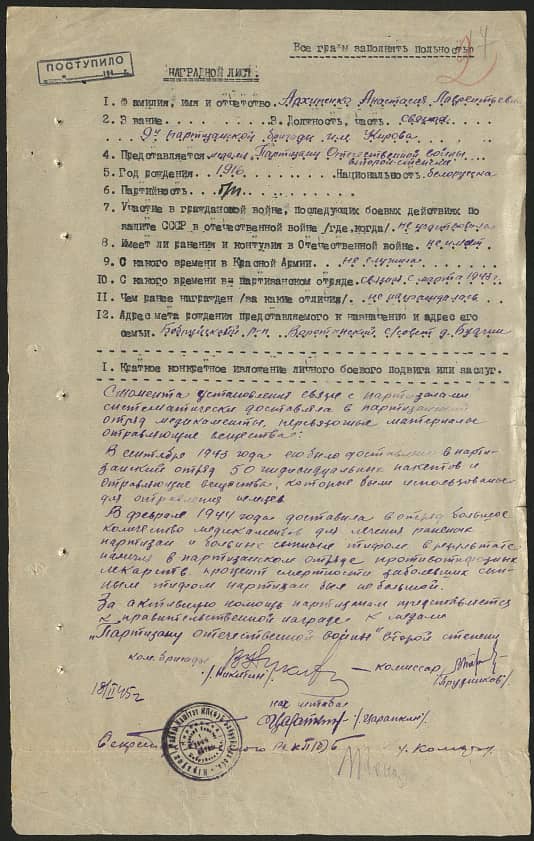 Все графы заполнять полностью
ПОСТУПИЛО
НАГРАДНОЙ ЛИСТ.
1. Фамилия, имя и отчество. Архипенко Анастасия Лаврентьевна
2. Звание 3. Должность, часть. связная
9й партизанской бригады им. Кирова
4. Представляется медали, Партизану Отечественной войны
второй степени
5. Год рождения. 1916 Национальность. белоруска
6. Партийность. б/п
7. Участие в гражданской войне, последующих боевых действиях по
защите СССР в отечественной войне /где, когда/. не участвовала
8. Имеет ли ранения и контузии в Отечественной войне. не имеет
9. С какого времени в Красной Армии. не служила
10. С какого времени в партизанском отряде. связная с марта 1943 г.
11. Чем ранее награжден /за какие отличия/. не награждалась
12. Адрес места рождения представляемого к назначению и адрес его
семьи. р-н. с/совет д.
1. Краткое конкретное изложение личного боевого подвига или заслуг.
С момента установления связи с партизанами
систематически доставляла в партизанский
отряд медикаменты, перевязочные материалы
отравляющие вещества:
В сентябре 1943 года ею было доставлено в парти-
занский отряд 50 индивидуальных пакетов и
отравляющие вещества, которые были использованы
для отравления немцев
В феврале 1944 года доставила в отряд большое
количество медикаментов для лечения раненых
партизан и больных сыпным тифом в результате
наличия в партизанском отряде противотифозных
лекарств, процент смертности заболевших сып-
ным тифом партизан был небольшой.
За активную помощь партизанам представляется
к правительственной награде к медали
„Партизану отечественной войны" второй степени
ком. бригады /Никитин/ комиссар /Прудников/
18/II 45 г нач штаба
/Царапкин/.